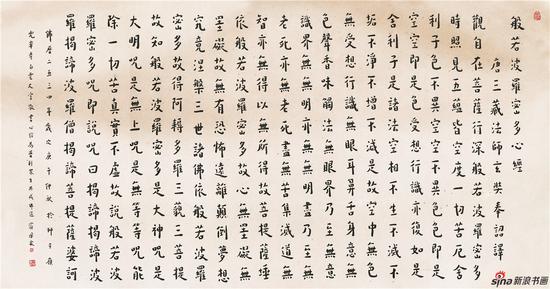 般若波羅密多心經
唐三藏法師玄奘奉詔譯
觀自在菩薩行深般若波羅密多
時照見五蘊皆空度一切苦厄舍
利子色不異空空不異色色即是
空空即是色受想行識亦復如是
舍利子是諸法空相不生不滅不
垢不淨不增不減是故空中無色
無受想行識無眼耳鼻舌身意無
色聲香味觸法無眼界乃至無意
識界無無明亦無無明盡乃至無
老死亦無老死盡無苦集滅道無
智亦無得以無所得故菩提薩埵
依般若波羅密多故心無罣礙無
罣礙故無有恐怖遠離顛倒夢想
究竟涅槃三世諸佛依般若波羅
密多故得阿耨多羅三藐三菩提
故知般若波羅密多是大神咒是
大明咒是無上咒是無等等咒能
除一切苦真實不虛故說般若波
羅密多咒即說咒曰揭諦揭諦波
羅揭諦波羅僧揭諦菩提薩婆訶
佛曆二五三四年歲次庚午仲秋於
sina 新浪书画